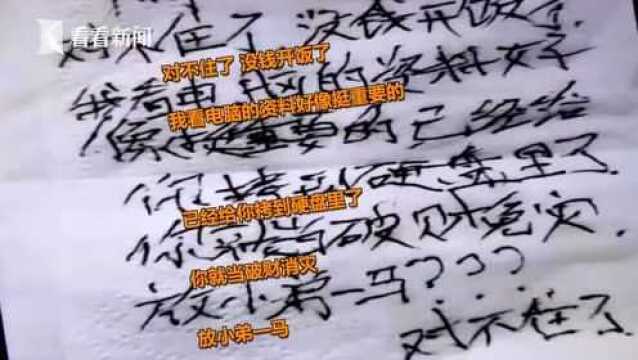 看看新闻
对不住了 没钱开饭了
对不住了 没钱开饭了
我看电脑的资料好
我看电脑的资料好像挺重要的
像挺重要的已经给
你拷到硬盘里了
已经给你拷到硬盘里了
你就当破财免灾
你就当破财消灾
放小弟一马???
放小弟一马
对不住了